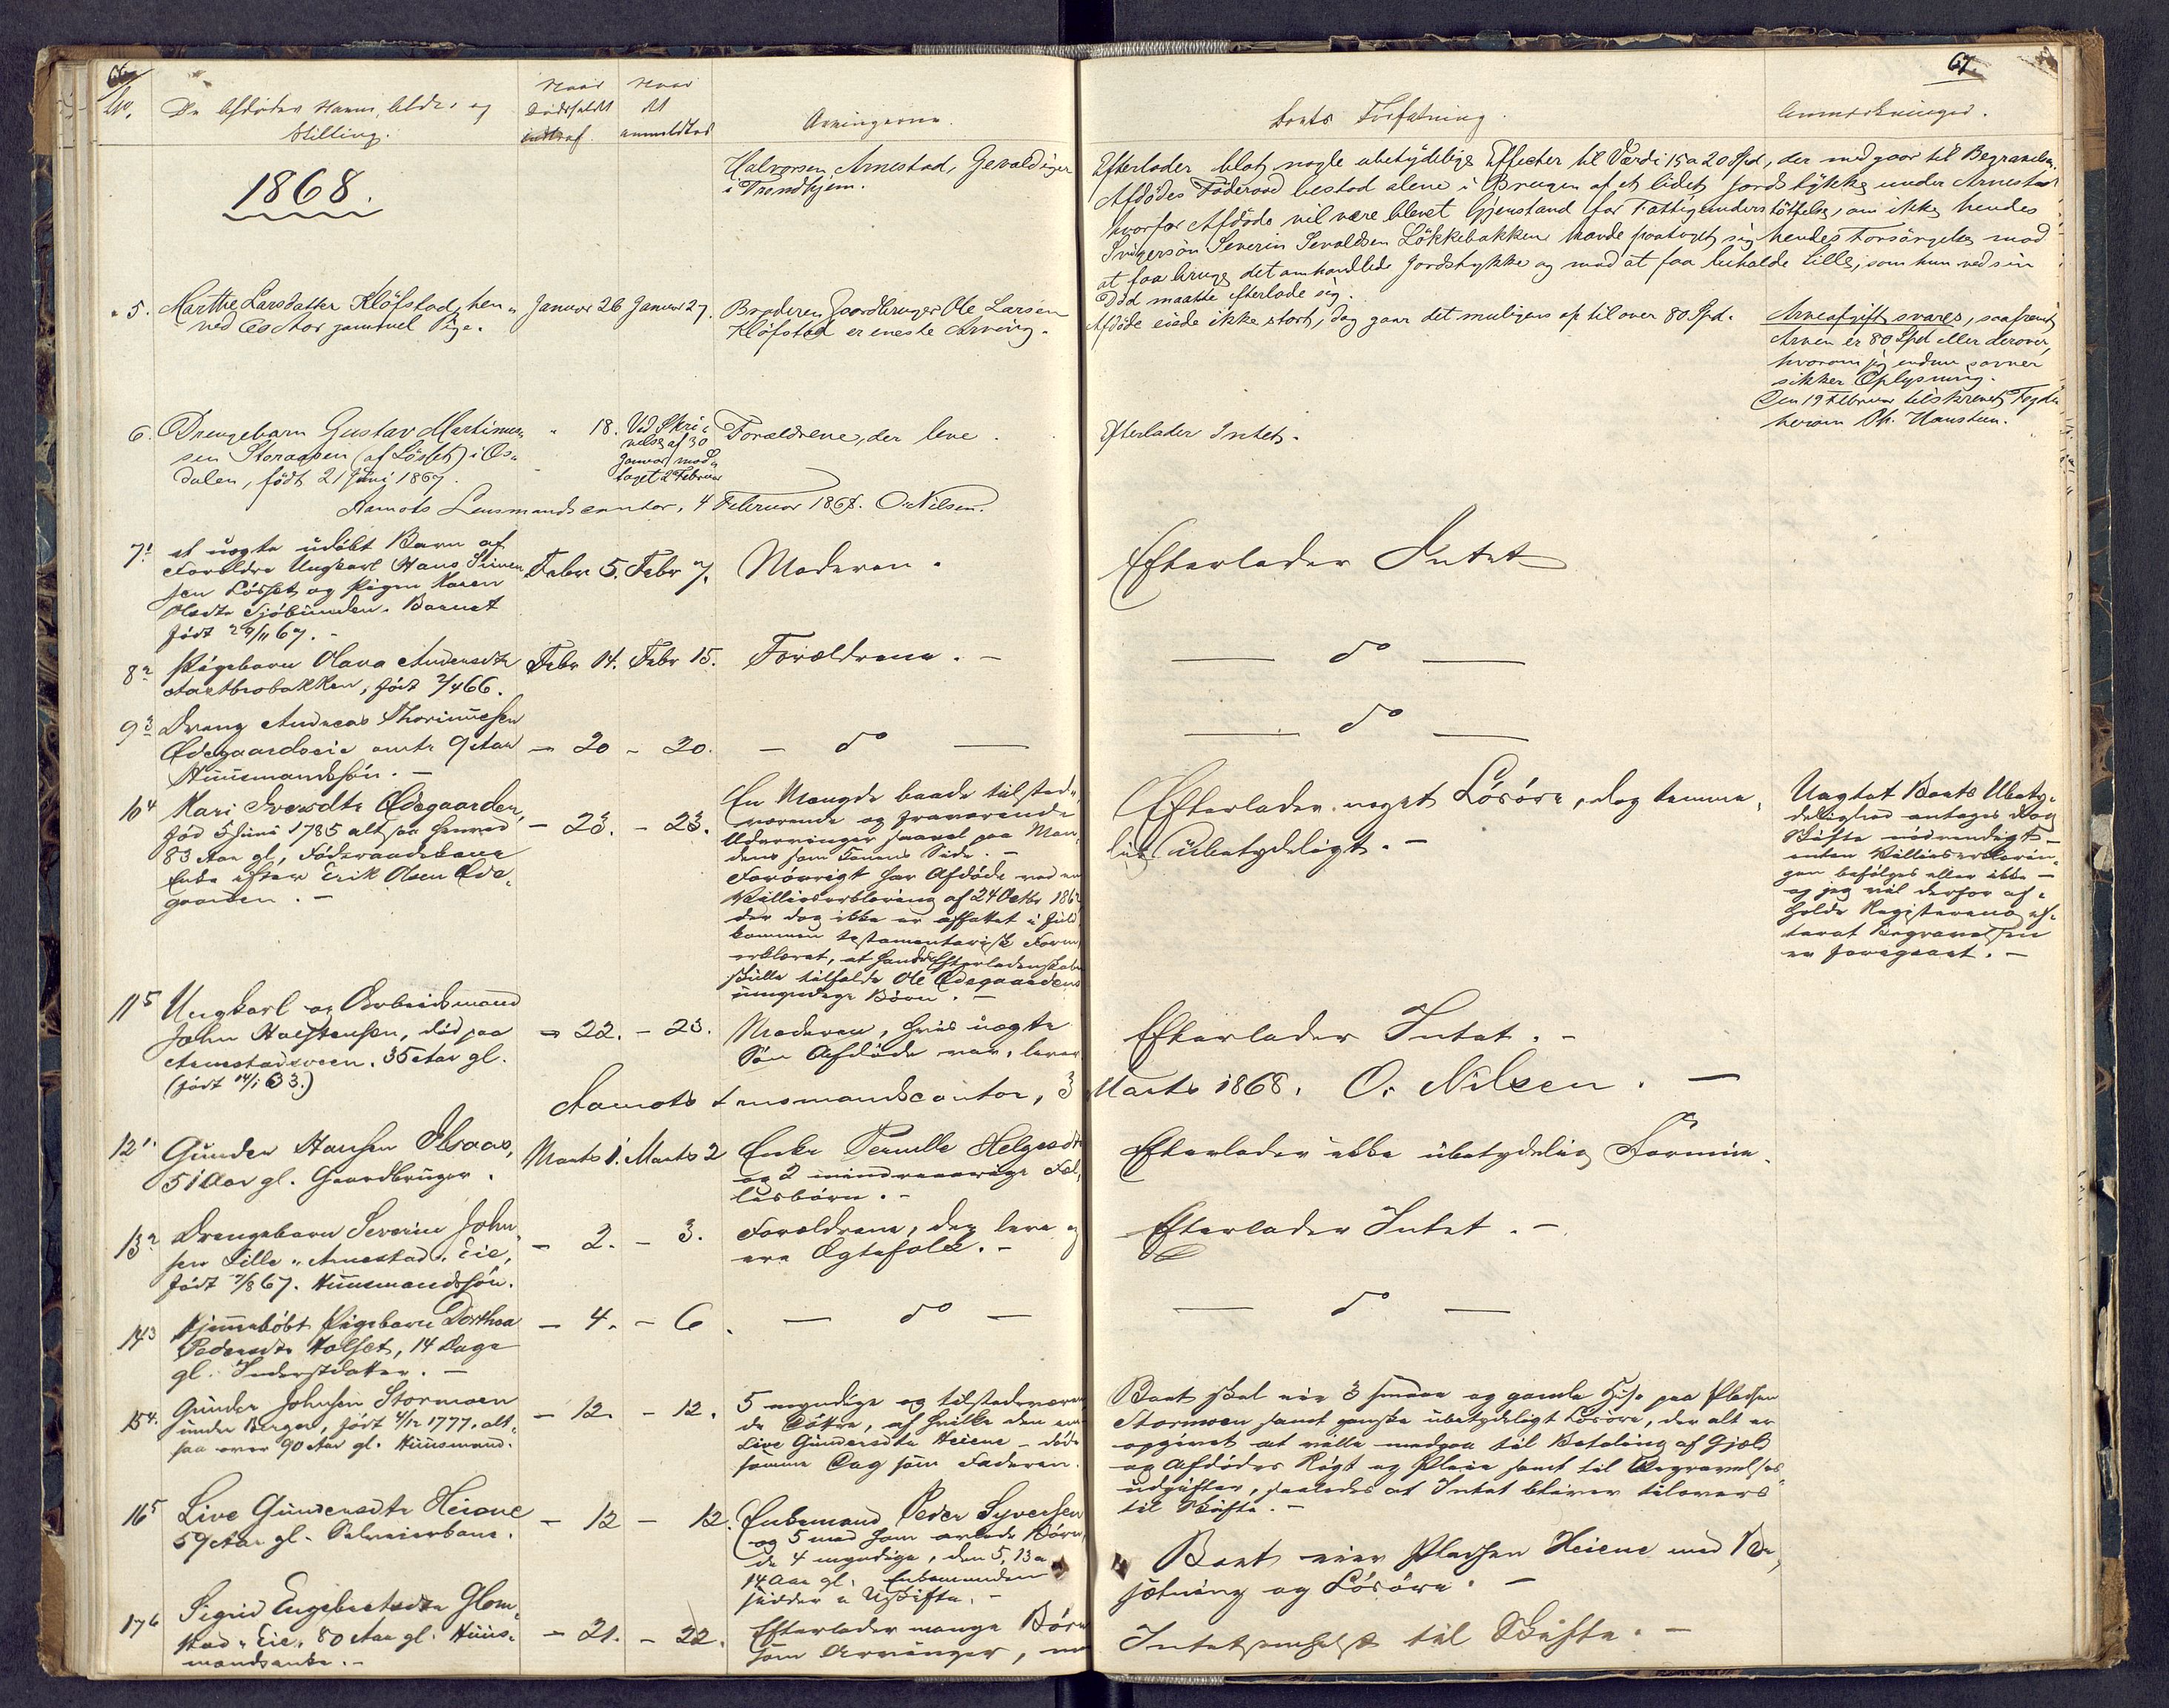 66
67.
No.
De Afdødes Navne, Alder og
Stilling.
Naar
Dødsfaldet
indtraf.
Naar
det
anmeldtes
Arvingerne.
Boets Forfatning.
Anmærkninger.
1868.
Halvorsen Arnestad, Gevaldiger
i Trondhjem.
Efterlader blot nogle ubetydelige Effecter til Værdi 15 a 20 Spd, der medgaar til Begravelsen.
Afdødes Føderaad bestod alene i Brugen af et lidet Jordstykke under Arnestad
hvorfor Afdøde vil være blevet Gjenstand for Fattigunderstøttelse, om ikke hendes
Svigersøn Severin Sevaldsen Løkkebakken havde paataget sig hendes Forsørgelse mod
at faa bruge det omhandlede Jordstykke og mod at faa beholde Lille, som hun ved sin
Død maatte efterlade sig.
5. Marthe Larsdatter Kløfstad, hen-
ved 60 Aar gammel Pige.
Januar 26 Januar 27.
Broderen Gaardbruger Ole Larsen
Kløfstad er eneste Arving.
Afdøde eiede ikke stort, dog gaar det muligens op til over 80 Spd.
Arveafgift svares, saafremt
Arven er 80 Spd eller derover,
hvorom jeg endnu savner
sikker Oplysning.
Den 19 Februar tilskrevet Fogden
herom Ch. Hansteen.
6. Drengebarn Gustav Martinus-
sen Storaasen (af Løsset) i Os-
dalen, født 21 Juni 1867.
" 18. Ved Skri-
velse af 30
Januar mod-
taget 2 Februar
Forældrene, der leve.
Efterlader Intet.
Aamots Lensmandscontor, 4 Februar 1868. O. Nilsen.
7 1 et uægte udøbt Barn af
Forældre Ungkarl Hans Simen-
sen Løsset og Pigen Karen
Olsdtr Sjøbunden. Barnet
født 29/11 67. -
Febr 5. Febr 7. Moderen.
Efterlader Intet
8 2 Pigebarn Olava Andersdtr
Aastbrobakken, født 2/4 66.
Febr 14. Febr 15. Forældrene. -
— do —
9 3 Dreng Andreas Thorinusen
Ødegaardseie omtr 9 Aar
Huusmandssøn. -
- 20 - 20. - do —
— do —
10 4 Kari Iversdtr Ødegaarden,
fød 5 Juni 1785 altsaa henved
83 Aar gl, Føderaadskone
Enke efter Erik Olsen Øde-
gaarden. -
- 23. - 23.
En Mængde baade tilstede-
værende og fraværende
Udarvinger saavel paa Man-
dens som Konens Side. -
Forøvrigt har Afdøde ved en
Villieserklæring af 24 Octbr 186
der dog ikke er affattet i fuld-
kommen testamentarisk Form
erklæret, at hendes Efterladenskaber
skulle tilfalde Ole Ødegaardens
umyndige Børn. -
Efterlader noget Løsøre, dog temme-
lig ubetydeligt. -
Uagtet Boets Ubety-
delighed antages dog
Skifte nødvendigt -
enten Villieserklærin-
gen befølges eller ikke -
og jeg vil derfor af-
holde Registrering ef-
terat Begravelsen
er foregaaet. -
11 5 Ungkarl og Arbeidsmand
John Halstensen, død paa
Arnestadsveen. 35 Aar gl.
(født 14/1 33.)
- 22. - 23. Moderen, hvis uægte
Søn Afdøde var, lever
Efterlader Intet. -
Aamots Lensmandscontor, 3 Marts 1868. O. Nilsen. —
12 1. Gunder Hansen Ilsaas,
51 Aar gl. Gaardbruger.
Marts 1. Marts 2 Enke Pernille Helgesdtr
og 2 mindreaarige Fæl-
lesbørn. -
Efterlader ikke ubetydelig Formue.
13 2 Drengebarn Severin John-
sen Lille- Arnestad. Eie,
født 7/8 67. Huusmandssøn.
- 2. - 3. Forældrene, der leve og
ere Ægtefolk. -
Efterlader Intet. -
14 3 Hjemmedøbt Pigebarn Dorthea
Pedersdtr Holset, 14 Dage
gl. Inderstdatter. -
- 4. - 6. - do -
— do —
15 4. Gunder Johnsen Stormoen
under Berger, født 4/12 1777. alt-
saa over 90 Aar gl. Huusmand.
- 12. - 12. 5 myndige og tilstedeværen-
de Døttre, af hvilke den ene
Live Gundersdtr Heiene - døde
samme Dag som Faderen.
Boet skal eie 3 smaae og gamle Huse paa Pladsen
Stormoen samt ganske ubetydeligt Løsøre, der alt er
opgivet at ville medgaa til Betaling af Gjæld
og Afdødes Røgt og Pleie samt til Begravelses-
udgifter, saaledes at Intet bliver tilovers
til Skifte. -
16 5 Live Gundersdtr Heiene
59 Aar gl. Selveierkone.
- 12 - 12. Enkemand Peder Syversen
og 5 med ham avlede Børn,
de 4 myndige, den 5, 13 a
14 Aar gl. Enkemanden
sidder i Uskifte. -
Boet eier Pladsen Heiene med Be-
sætning og Løsøre. -
17 6 Sigrid Engebretsdtr Glom-
stad- Eie. 80 Aar gl. Huus-
mandsenke. -
- 21. - 22. Efterlader mange Børn
som Arvinger, men
Intetsomhelst til Skifte. -